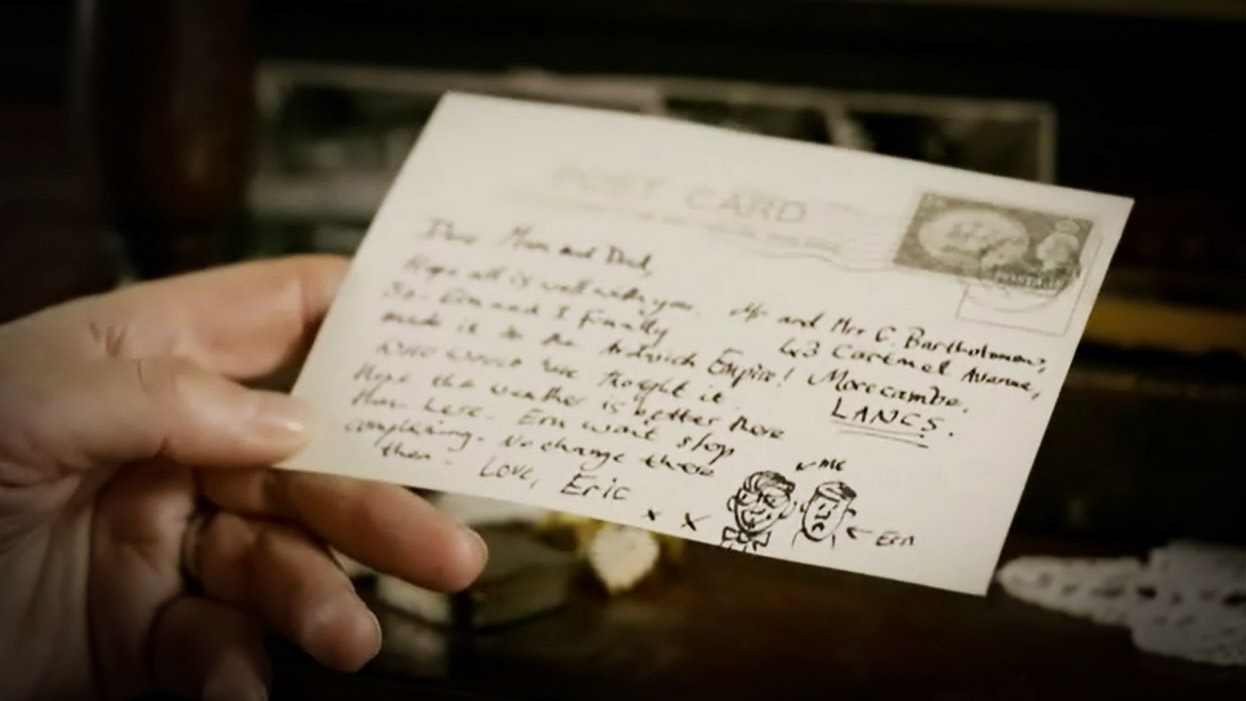 POST CARD
Dear Mum and Dad,
Hope all is well with you.
So- Ern and I Finally
made it to the Ardwich Empire!
Who would have thought it.
Hope the weather is better there
than here. Ern wont stop
complaining. No change there
then - Love, Eric
x x
Mr and Mrs G. Bartholomew,
43 Cartmel Avenue,
Morecambe,
LANCS.
ME
Ern